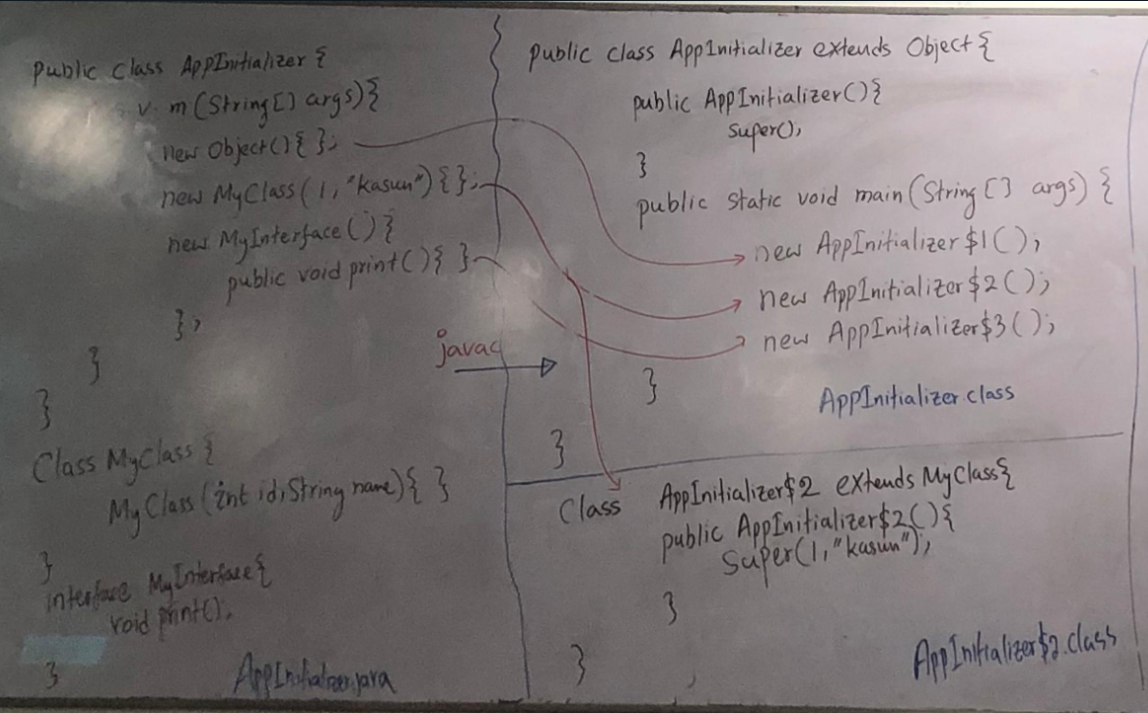 public class AppInitializer {
v. m (String[] args){
new Object(){ };
new MyClass(1,"kasun"){ };
new MyInterface(){
public void print(){ }
};
}
}
Class MyClass {
MyClass(int id,String name){ }
}
interface MyInterface{
void print();
}
AppInitializer.java
javac
public class AppInitializer extends Object {
public AppInitializer(){
super();
}
public static void main(String[] args) {
new AppInitializer$1();
new AppInitializer$2();
new AppInitializer$3();
}
AppInitializer.class
}
Class AppInitializer$2 extends MyClass{
public AppInitializer$2(){
Super(1,"kasun");
}
AppInitializer$2.class
}